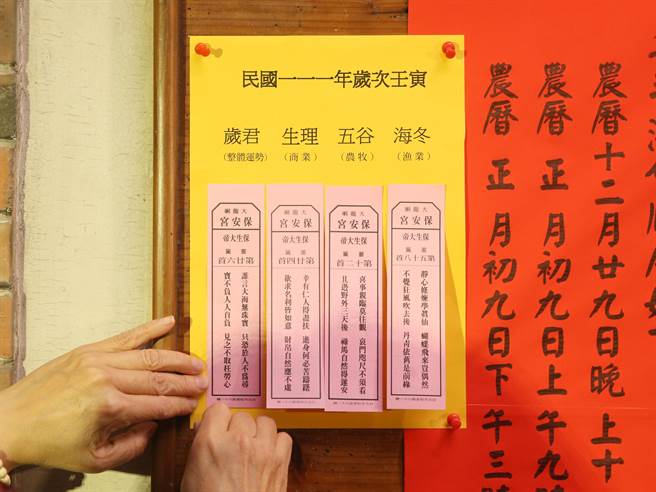 民國一一一年歲次壬寅
歲君 生理 五谷 海冬
(整體運勢) (商業) (農牧) (漁業)
大龍峒
保安宮
保生大帝
靈籤
第廿六首
誰言大海無珠寶 只恐於人不為尋
寶不負人人自負 見之不取枉勞心
大龍峒
保安宮
保生大帝
靈籤
第廿四首
幸有仁人得盡扶 進身何必苦躊躇
欲求名利皆如意 財帛自然應不虛
大龍峒
保安宮
保生大帝
靈籤
第十二首
喜事親臨莫往觀 喪門咫尺不須看
且恐野外三天後 祿馬自然得運安
大龍峒
保安宮
保生大帝
靈籤
第五十八首
靜心修煉學真仙 蝴蝶飛來豈偶然
不覺狂風吹去後 丹青依舊是前緣
農曆十二月廿九日晚上十
農曆 正月初九日上午九時
農曆 正月初九日下午三時